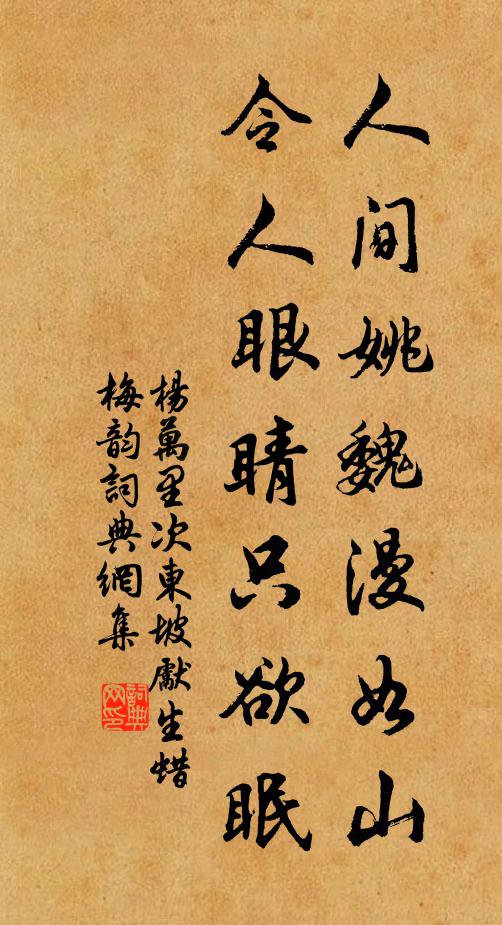 人间姚魏漫如山
令人眼睛只欲眠
楊萬里次東坡獻生蜡
梅韵詞典網集
詞典網印